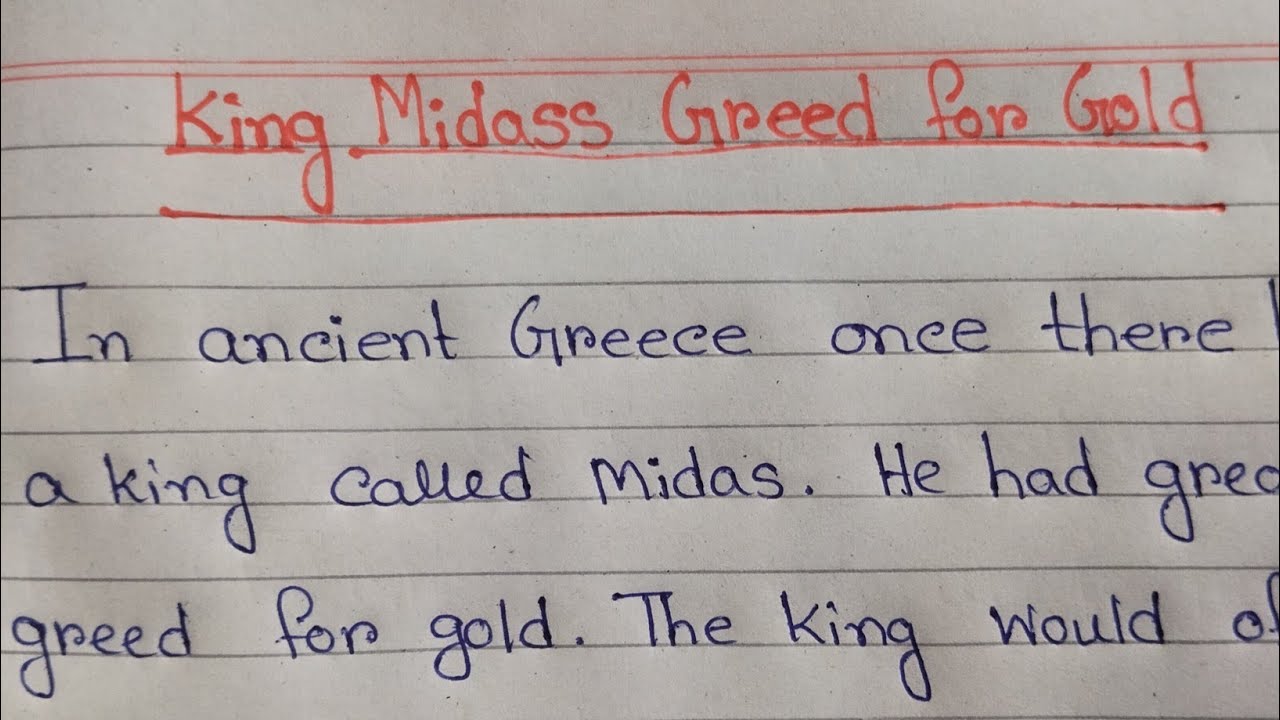 King Midass Greed for Gold
In ancient Greece once there
a king called Midas. He had
greed for gold. The king would